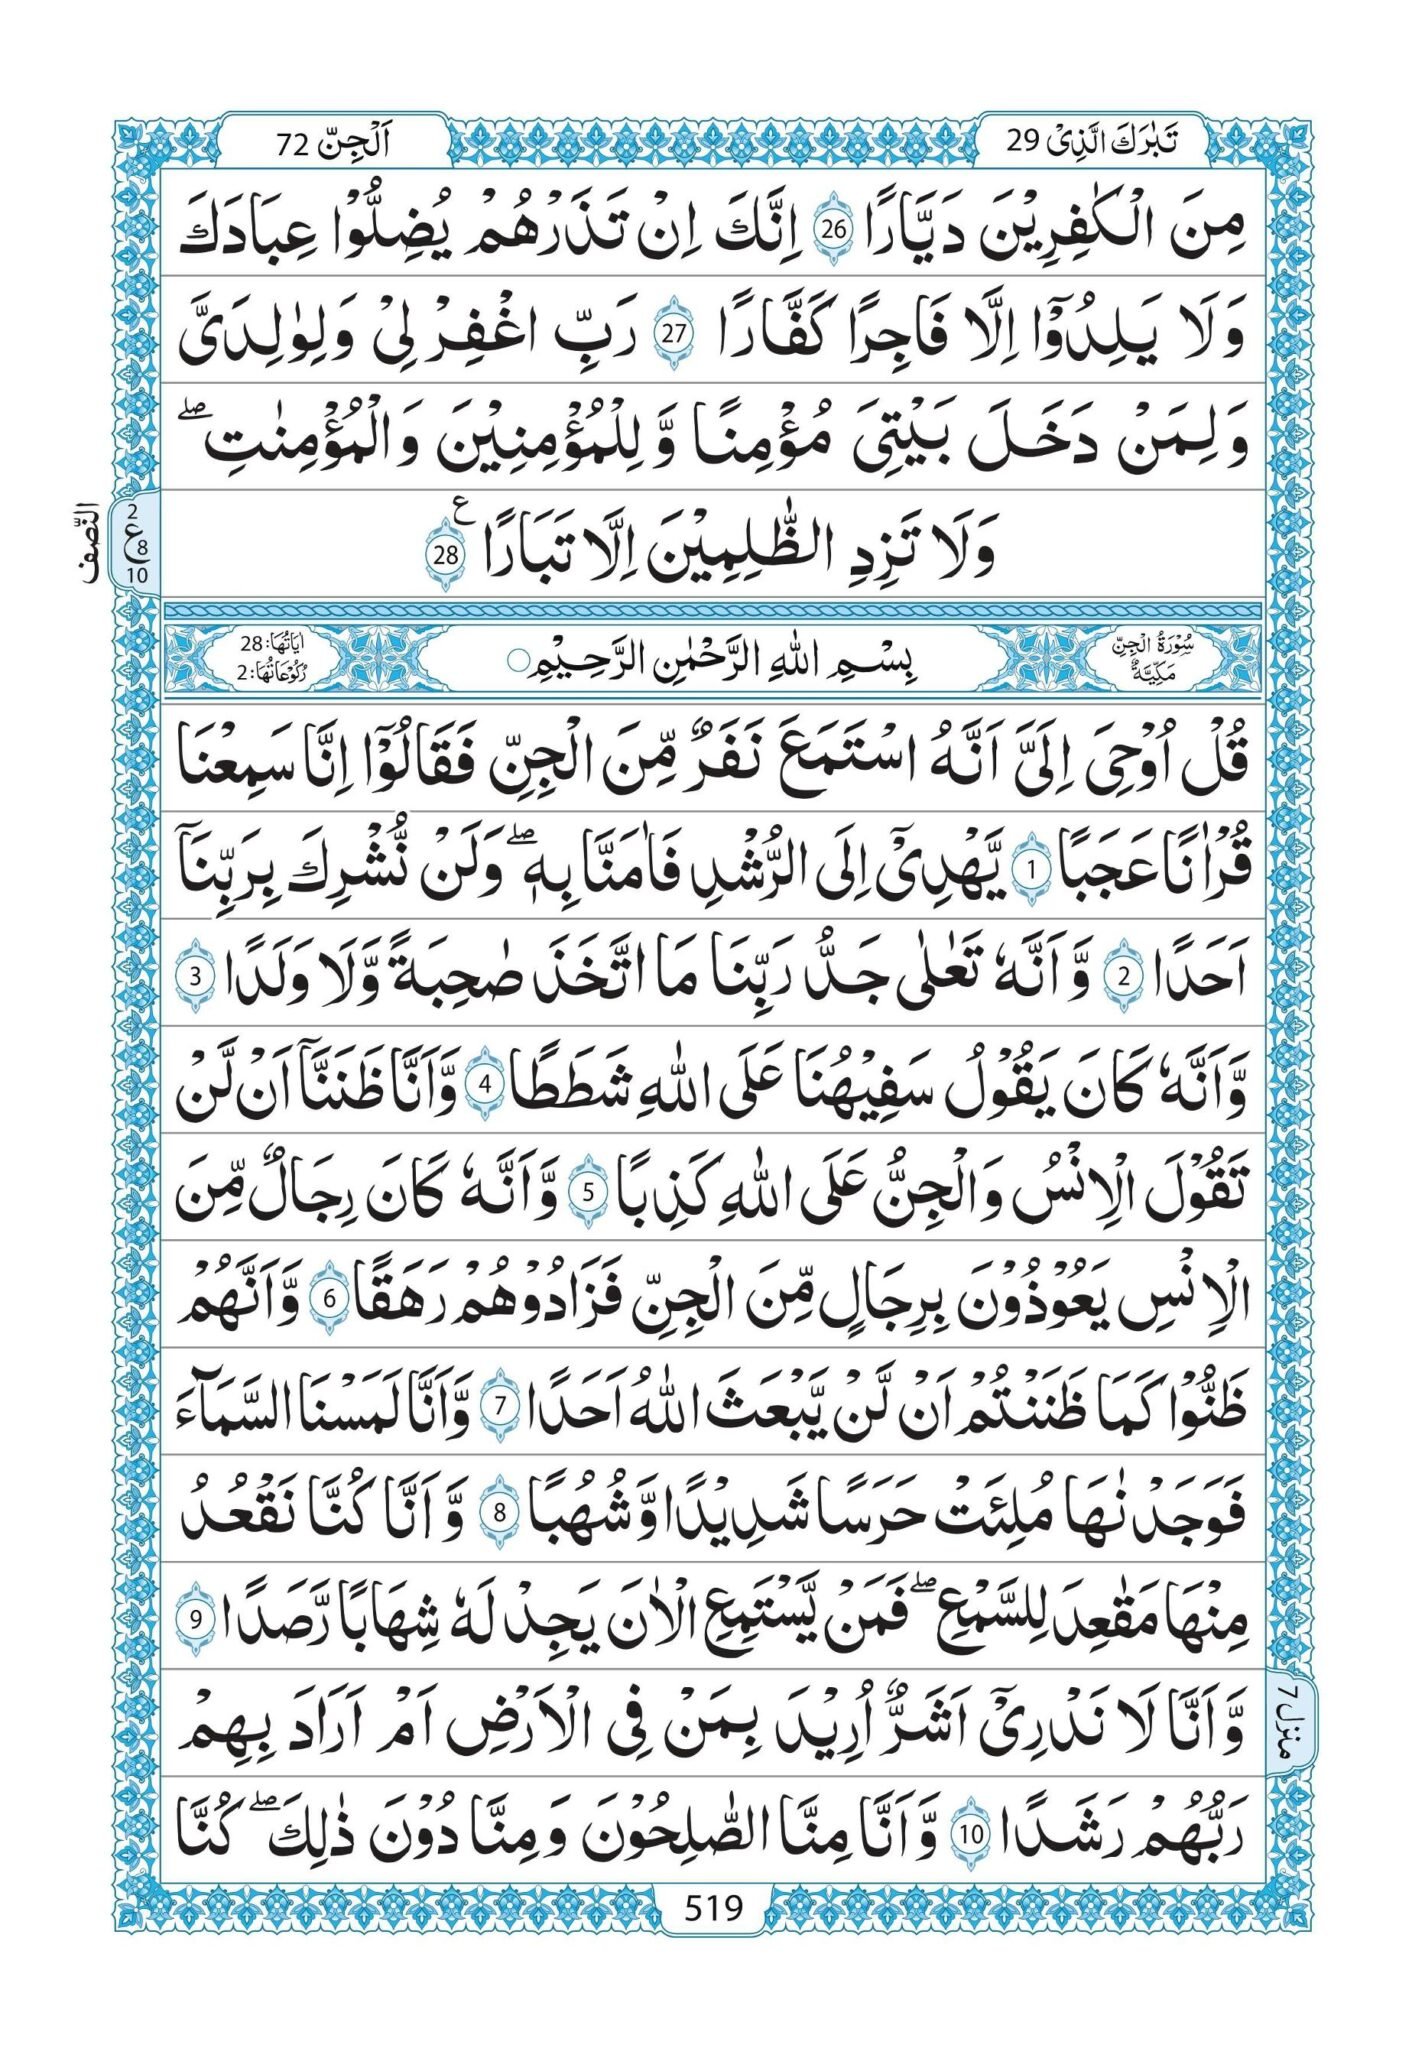 تَبٰرَكَ الَّذِیْ 29
اَلْجِنّ 72
مِنَ الْكٰفِرِیْنَ دَیَّارًا 26 اِنَّكَ اِنْ تَذَرْهُمْ یُضِلُّوْا عِبَادَكَ
وَلَا یَلِدُوْۤا اِلَّا فَاجِرًا كَفَّارًا 27 رَبِّ اغْفِرْ لِیْ وَلِوٰلِدَیَّ
وَلِمَنْ دَخَلَ بَیْتِیَ مُؤْمِنًا وَّ لِلْمُؤْمِنِیْنَ وَالْمُؤْمِنٰتِ ۖ
وَلَا تَزِدِ الظّٰلِمِیْنَ اِلَّا تَبَارًا ع 28
النِّصف
2
ع 8
10
سُوْرَةُ الْجِنِّ مَكِّیَّةٌ
بِسْمِ اللهِ الرَّحْمٰنِ الرَّحِیْمِ
اٰیَاتُهَا: 28
رُكُوْعَاتُهَا: 2
قُلْ اُوْحِیَ اِلَیَّ اَنَّهُ اسْتَمَعَ نَفَرٌ مِّنَ الْجِنِّ فَقَالُوْۤا اِنَّا سَمِعْنَا
قُرْاٰنًا عَجَبًا 1 یَّهْدِیْۤ اِلَى الرُّشْدِ فَاٰمَنَّا بِهٖ ۖ وَلَنْ نُّشْرِكَ بِرَبِّنَاۤ
اَحَدًا 2 وَّ اَنَّهٗ تَعٰلٰی جَدُّ رَبِّنَا مَا اتَّخَذَ صٰحِبَةً وَّلَا وَلَدًا 3
وَّاَنَّهٗ كَانَ یَقُوْلُ سَفِیْهُنَا عَلَى اللهِ شَطَطًا 4 وَّاَنَّا ظَنَنَّاۤ اَنْ لَّنْ
تَقُوْلَ الْاِنْسُ وَالْجِنُّ عَلَى اللهِ كَذِبًا 5 وَّاَنَّهٗ كَانَ رِجَالٌ مِّنَ
الْاِنْسِ یَعُوْذُوْنَ بِرِجَالٍ مِّنَ الْجِنِّ فَزَادُوْهُمْ رَهَقًا 6 وَّاَنَّهُمْ
ظَنُّوْا كَمَا ظَنَنْتُمْ اَنْ لَّنْ یَّبْعَثَ اللهُ اَحَدًا 7 وَّاَنَّا لَمَسْنَا السَّمَآءَ
فَوَجَدْنٰهَا مُلِئَتْ حَرَسًا شَدِیْدًا وَّ شُهُبًا 8 وَّ اَنَّا كُنَّا نَقْعُدُ
مِنْهَا مَقٰعِدَ لِلسَّمْعِ ۖ فَمَنْ یَّسْتَمِعِ الْاٰنَ یَجِدْ لَهٗ شِهَابًا رَّصَدًا 9
وَّ اَنَّا لَا نَدْرِیْۤ اَشَرٌّ اُرِیْدَ بِمَنْ فِی الْاَرْضِ اَمْ اَرَادَ بِهِمْ
رَبُّهُمْ رَشَدًا 10 وَّ اَنَّا مِنَّا الصّٰلِحُوْنَ وَمِنَّا دُوْنَ ذٰلِكَ ۖ كُنَّا
منزل 7
519